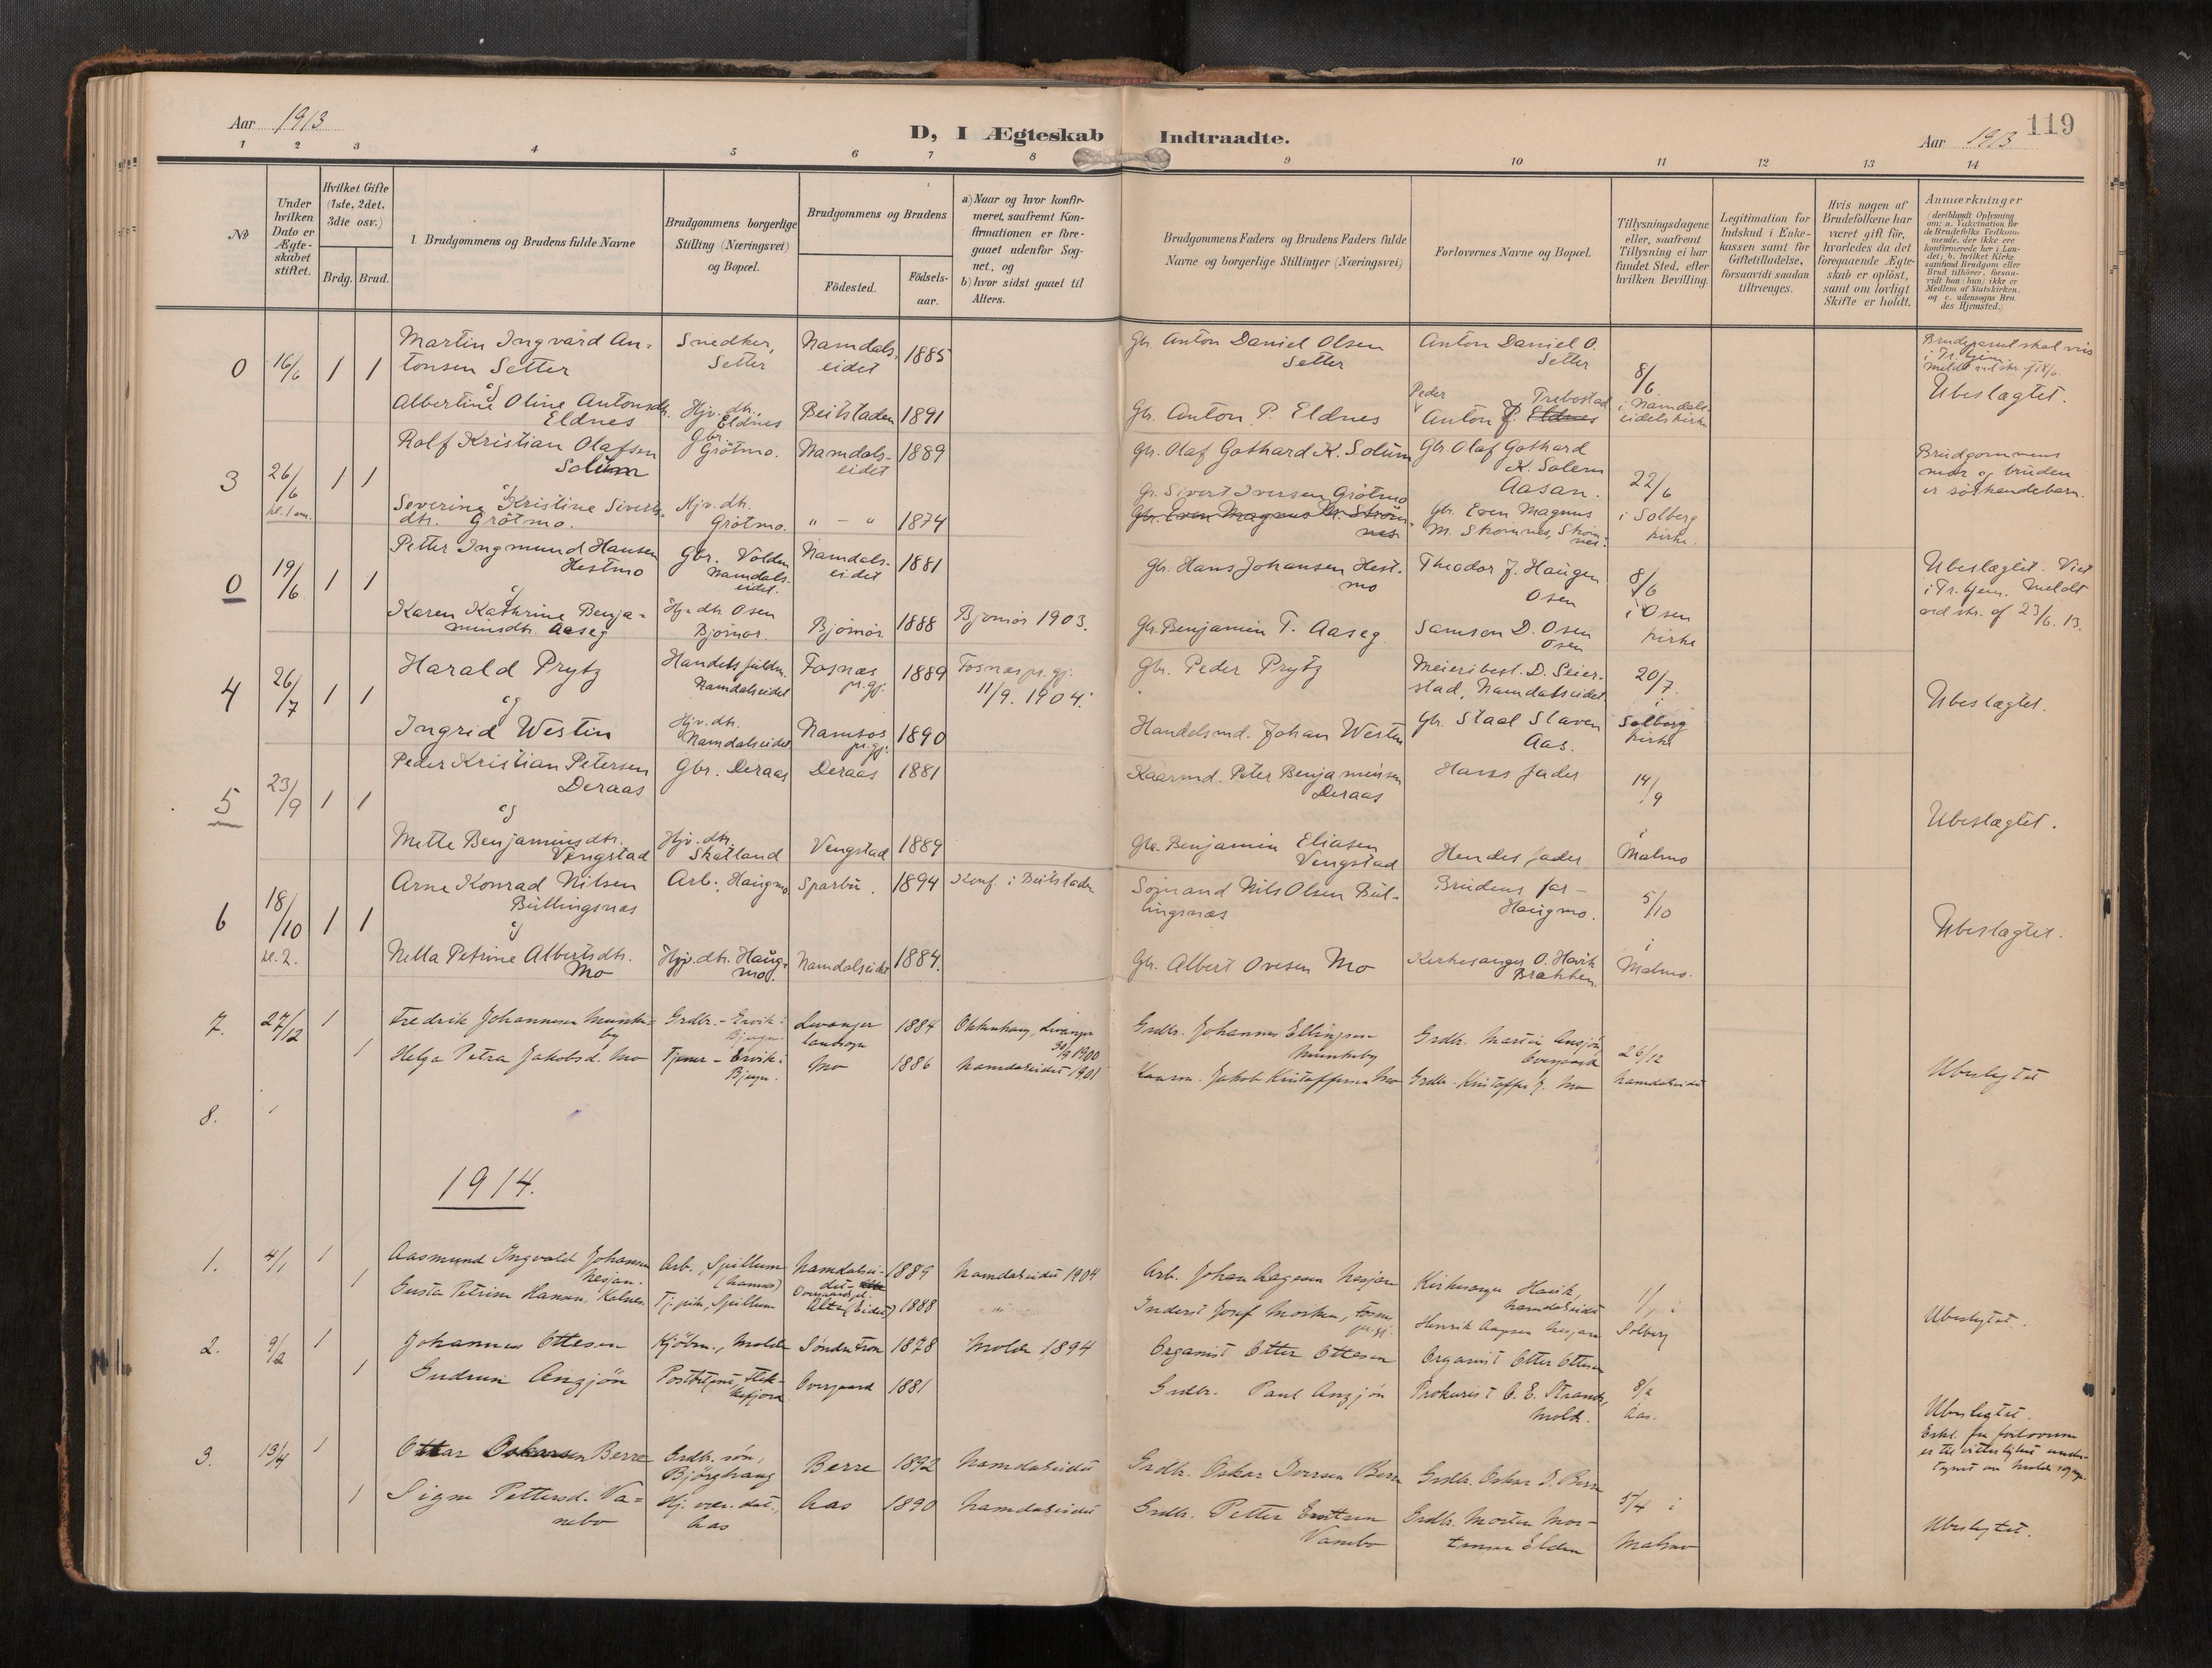 119
Aar 1913
D, I Ægteskab Indtraadte.
Aar 1913
1 2 3 4 5 6 7 8 9 10 11 12 13 14
No
Under hvilken Dato er Ægteskabet stiftet.
Hvilket Gifte (1ste, 2det, 3die osv.)
Brdg. Brud.
1. Brudgommens og Brudens fulde Navne
Brudgommens borgerlige Stilling (Næringsvei) og Bopæl.
Brudgommens og Brudens
Födested.
Födsels-aar.
a) Naar og hvor konfir-
meret, saafremt Kon-
firmationen er fore-
gaaet udenfor Sog-
net, og
b) hvor sidst gaaet til
Alters.
Brudgommens Faders og Brudens Faders fulde
Navne og borgerlige Stillinger (Næringsvei)
Forlovernes Navne og Bopæl.
Tillysningsdagene
eller, saafremt
Tillysning ei har
fundet Sted, efter
hvilken Bevilling.
Legitimation for
Indskud i Enke-
kassen samt for
Giftetilladelse,
forsaavidt saadan
tiltrænges.
Hvis nogen af
Brudefolkene har
været gift før,
hvorledes da det
foregaaende Ægte-
skab er oplöst,
samt om lovligt
Skifte er holdt.
Anmærkninger
(deriblandt Oplysning
om: a. Vakcination for
de Brudefolks Vedkom-
mende, der ikke ere
konfirmerede her i Lan-
det; b. hvilket Kirke
samfund Brudgom eller
Brud tilhører, forsaa-
vidt han (hun) ikke er
Medlem af Statskirken.
og c. udensogns Bru
des Hjemsted.)
0 16/6 1 1
Martin Ingvard An-
tonsen Setter
og
Albertine Oline Antonsdtr.
Eldnes
Snedker,
Setter
Hjv. dtr.
Eldnes
Namdals-
eidet 1885
Beitstaden 1891
Gbr. Anton Daniel Olsen
Setter
Gbr. Anton P. Eldnes
Anton Daniel O.
Setter
Peder Trebostad
Anton P. Eldnes
8/6
i Namdals-
eidets kirke
Ubeslægtet.
3 26/6 kl. 1 em. 1 1
Rolf Kristian Olafsen
Solum
og
Severine Kristine Siverts-
dtr. Grötmo.
Gbr.
Grötmo.
Hjv. dtr.
Grötmo.
Namdals-
eidet 1889
" - " 1874
Gbr. Olaf Gothard K. Solum
Gr. Sivert Iversen Grötmo
Gbr. Even Magnus M. Ström-
nes
Gbr Olaf Gothard
K. Solem
Aasan.
Gbr. Even Magnus
22/6
i Solberg
kirke.
Brudgommens
mor og bruden
er söskendebarn.
0 19/6 1 1
Petter Ingmund Hansen
Hestmo
og
Karen Kathrine Benja-
minsdtr. Aaseg
Gbr. Volden
Namdals-
eidet.
Hjv. dtr. Osen
Bjørnør
Namdals-
eidet 1881
Bjørnør 1888 Bjørnør 1903.
Gbr. Hans Johansen Hest-
mo
Gbr. Benjamin T. Aaseg.
Theodor J. Haugen
Osen
Samson D. Osen
Osen
8/6
i Osen
kirke
Ubeslægtet. Viet
i Tr. hjem. Meldt
ved skr. af 23/6. 13.
4 26/7 1 1
Harald Prytz
og
Ingrid Westin
Handelsfuldm.
Namdalseidet
Hjv. dtr.
Namdalseidet
Fosnæs
pr.gj. 1889
Namsos
pr.gj. 1890
Fosnæs pr.gj.
11/9. 1904.
Gbr. Peder Prytz
Handelsmd. Johan Westin
Meieribest. D. Seier-
stad, Namdalseidet
Gbr. Staal Slaven
Aas.
20/7
i
Solberg
kirke
Ubeslægtet.
5 23/9 1 1
Peder Kristian Petersen
Deraas
og
Mette Benjaminsdtr.
Vengstad
Gbr. Deraas
Hjv. dtr.
Skatland
Deraas 1881
Vengstad 1889
Kaarmd. Peter Benjaminsen
Deraas
Gbr. Benjamin Eliasen
Vengstad
Hans fader
Hendes fader
14/9
i
Malmo
Ubeslægtet.
6 18/10 kl. 2. 1 1
Arne Konrad Nilsen
Bullingsnæs
og
Nella Petrine Albertsdtr.
Mo
Arb., Haugmo
Hjv. dtr. Haug-
mo.
Sparbu. 1894 Konf. i Beitstaden
Namdalseidet 1884.
Sömand Nils Olsen Bul-
lingsnæs
Gbr. Albert Ovesen Mo
Brudens far -
Haugmo.
Kirkesanger O. Havik
Brakken.
5/10
i
Malmo.
Ubeslægtet.
7. 27/12 1
1
Fredrik Johannesen Munke-
by
Helga Petra Jakobsd. Mo
Grdbr. - Ervik i
Bjugn.
Tjener - Ervik i
Bjugn.
Levanger
landsogn 1884
Mo 1886
Okkenhaug, Levanger
30/9 1900
Namdalseidet 1901
Grdbr. Johannes Ellingsen
Munkeby
Kaarm. Jakob Kristoffersen Mo
Grdbr. Martin Ansjön
Overgaard
Grdbr. Kristoffer J. Mo
26/12
Namdalseidet
Ubeslegtet
8.
1914.
1. 4/1 1
1
Aasmund Ingvald Johansen
Nesjan.
Gusta Petrine Hansen, Kalnes
Arb., Spillum
Tj. pike, Spillum
Namdalsei-
det 1889
1888
Namdalseidet 1904
Arb. Johan Aagesen Nesjan
Inderst Josef Morken, Fosnes
pr.gj.
Kirkesanger Havik,
Namdalseidet
Henrik Aagesen Nesjan
1/1 i
Solberg
Ubeslegtet.
2. 9/2 1
1
Johannes Ottesen
Gudrun Angjön
Kjöbm., Molde
Postbetjent, Flek-
kefjord
Söndre Fron 1878
Overgaard 1881
Molde 1894
Organist Otter Ottesen
Grdbr. Paul Angjön
Organist Otter Ottesen
Prokurist O. E. Strande,
Molde.
8/2
Aas.
Ubeslegtet.
3. 13/4 1
1
Ottar Oskarsen Berre
Signe Pettersd. Va-
nebo
Grdbr. sön,
Bjørghaug
Hj. vær. dat.,
Aas
Berre 1892
Aas 1890
Namdalseidet
Namdalseidet
Grdbr. Oskar Iversen Berre
Grdbr. Petter Erntsen
Vanebo
Grdbr. Oskar I. Berre
Grdbr. Morten Mor-
tensen Elden
5/4 i
Malmo
Ubeslegtet.